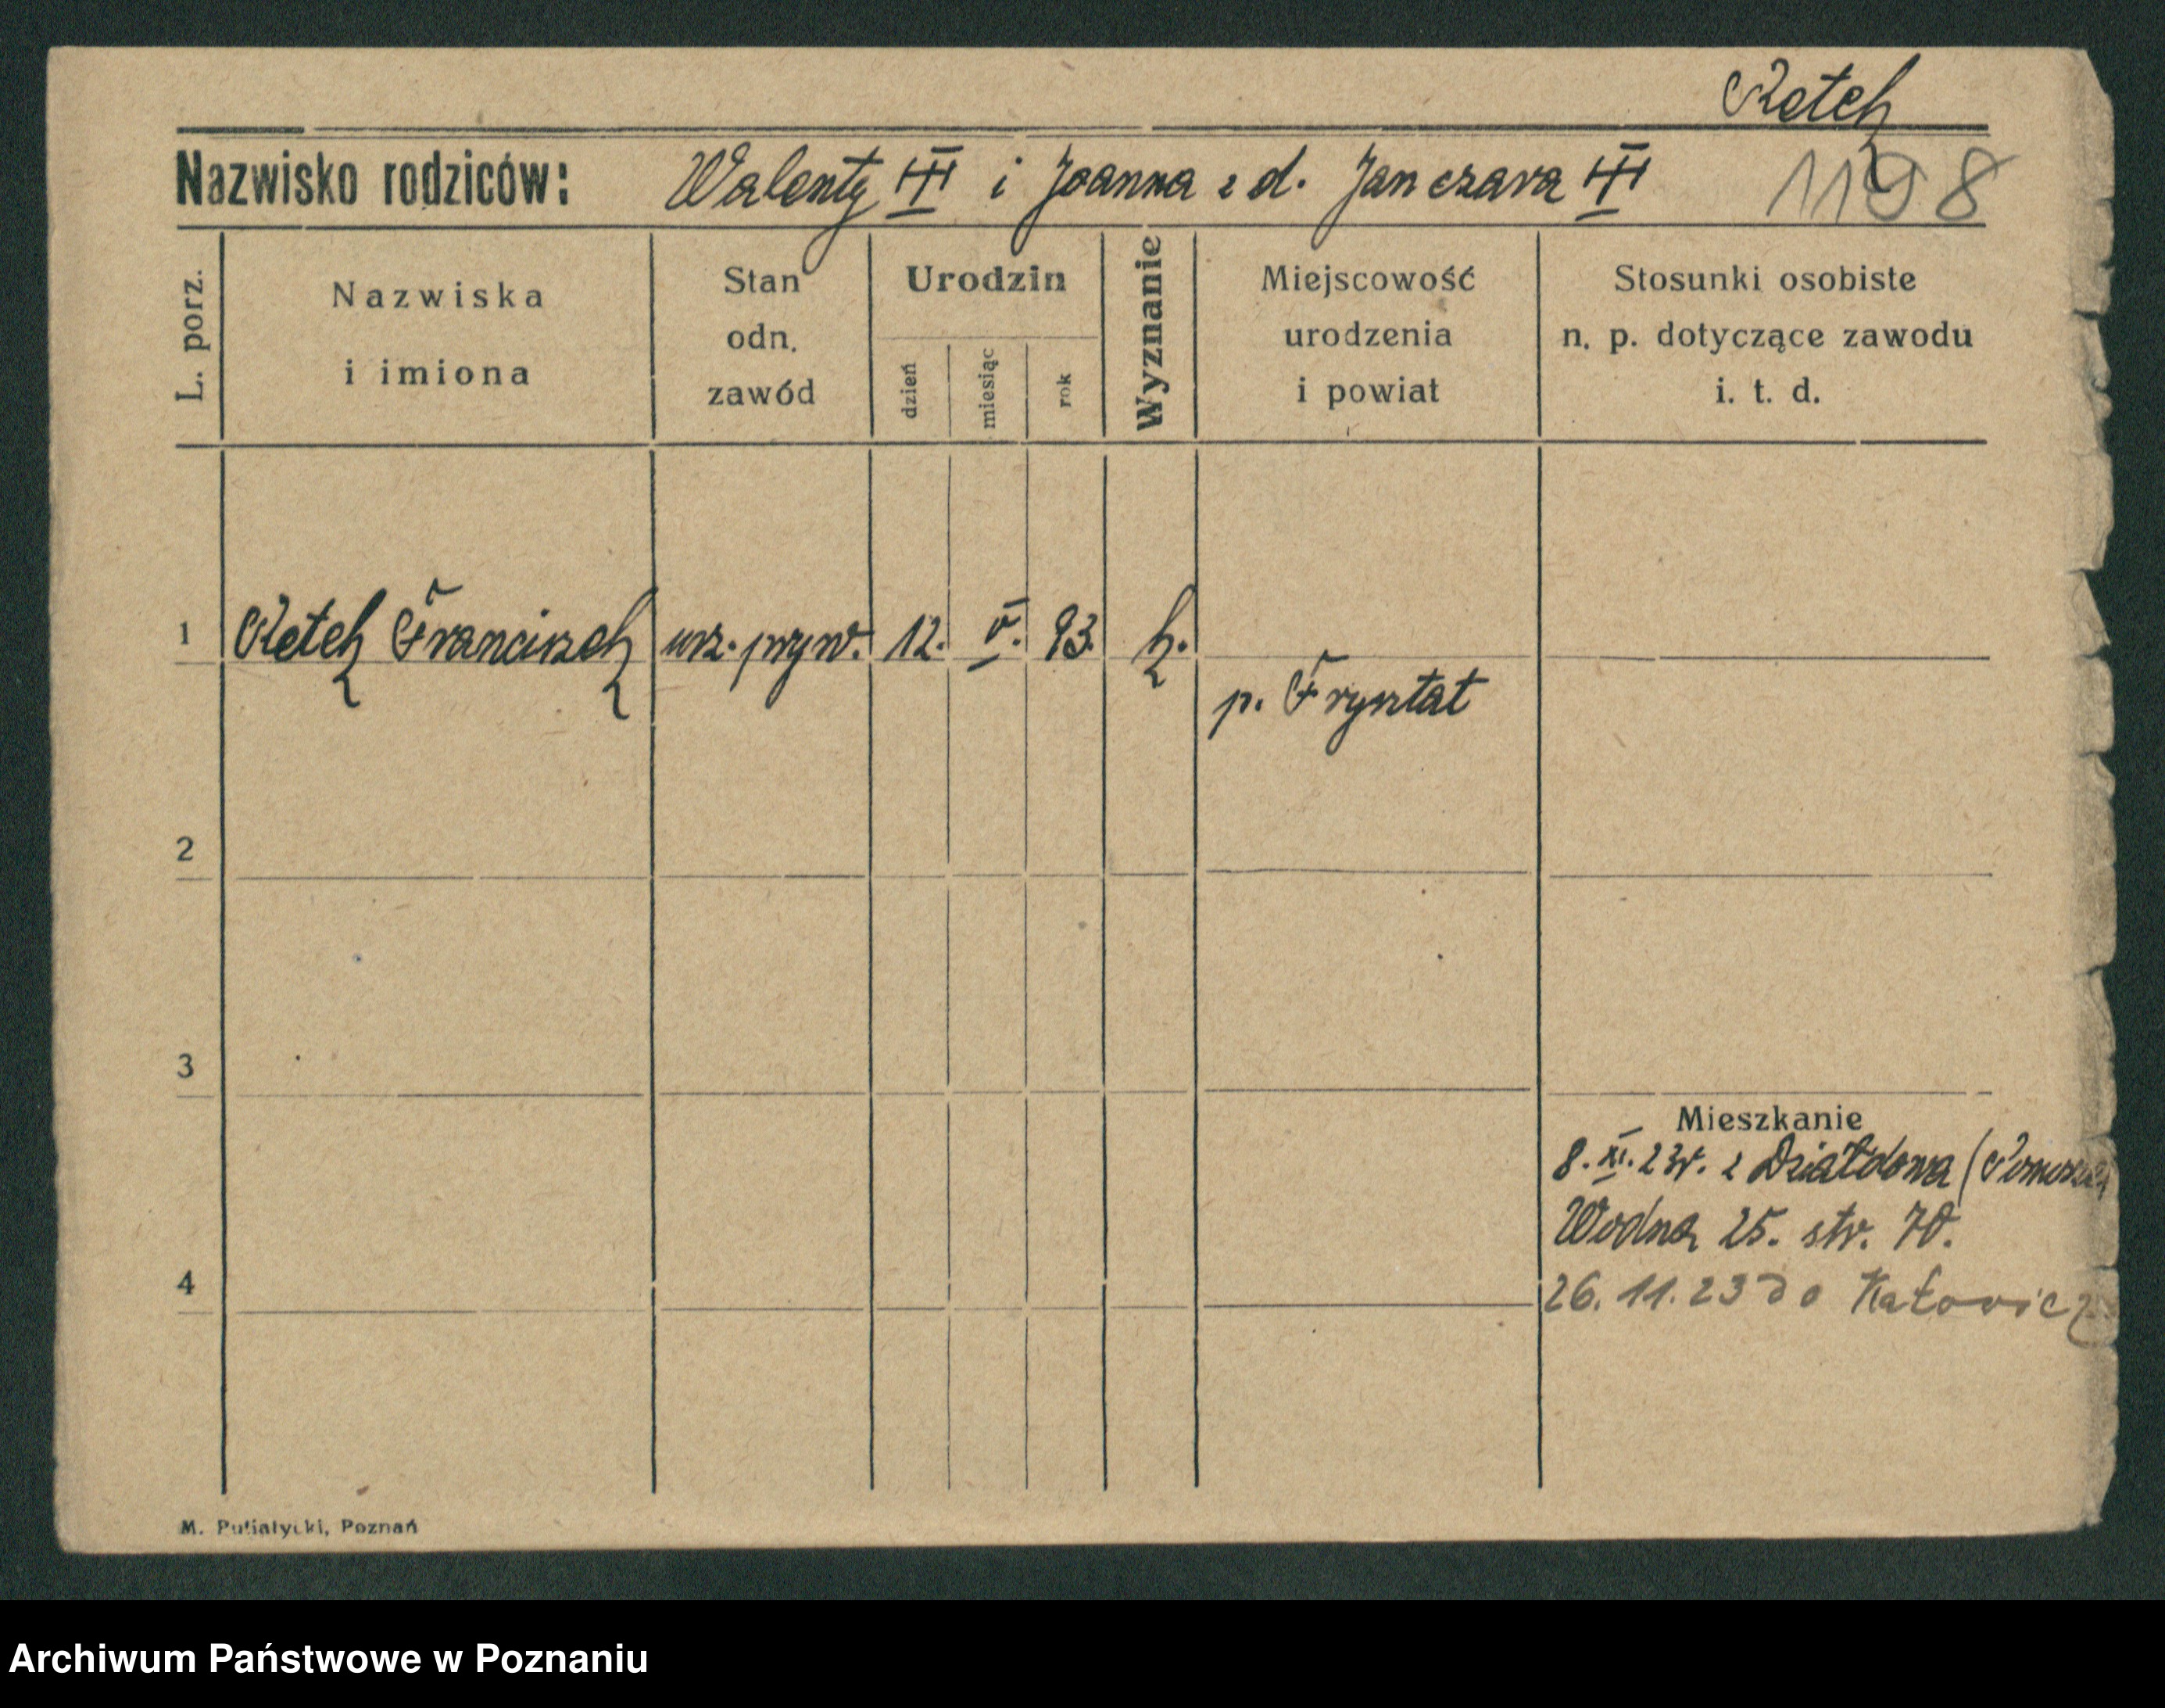 Retek
Nazwisko rodziców: Walenty i Joanna z d. Janczara 1198
L. porz.
Nazwiska i imiona
Stan odn. zawód
Urodzin
dzień
miesiąc
rok
Wyznanie
Miejscowość urodzenia i powiat
Stosunki osobiste n. p. dotyczące zawodu i. t. d.
1 Retek Franciszek urz. pryw. 12. V. 93. k.
p. Frysztat
2
3
Mieszkanie
8. XI. 23r. z Działdowa (Pomorze)
Wodna 25. str. 70.
4
26. 11. 23 do Katowic
M. Putiatycki, Poznań
Archiwum Państwowe w Poznaniu